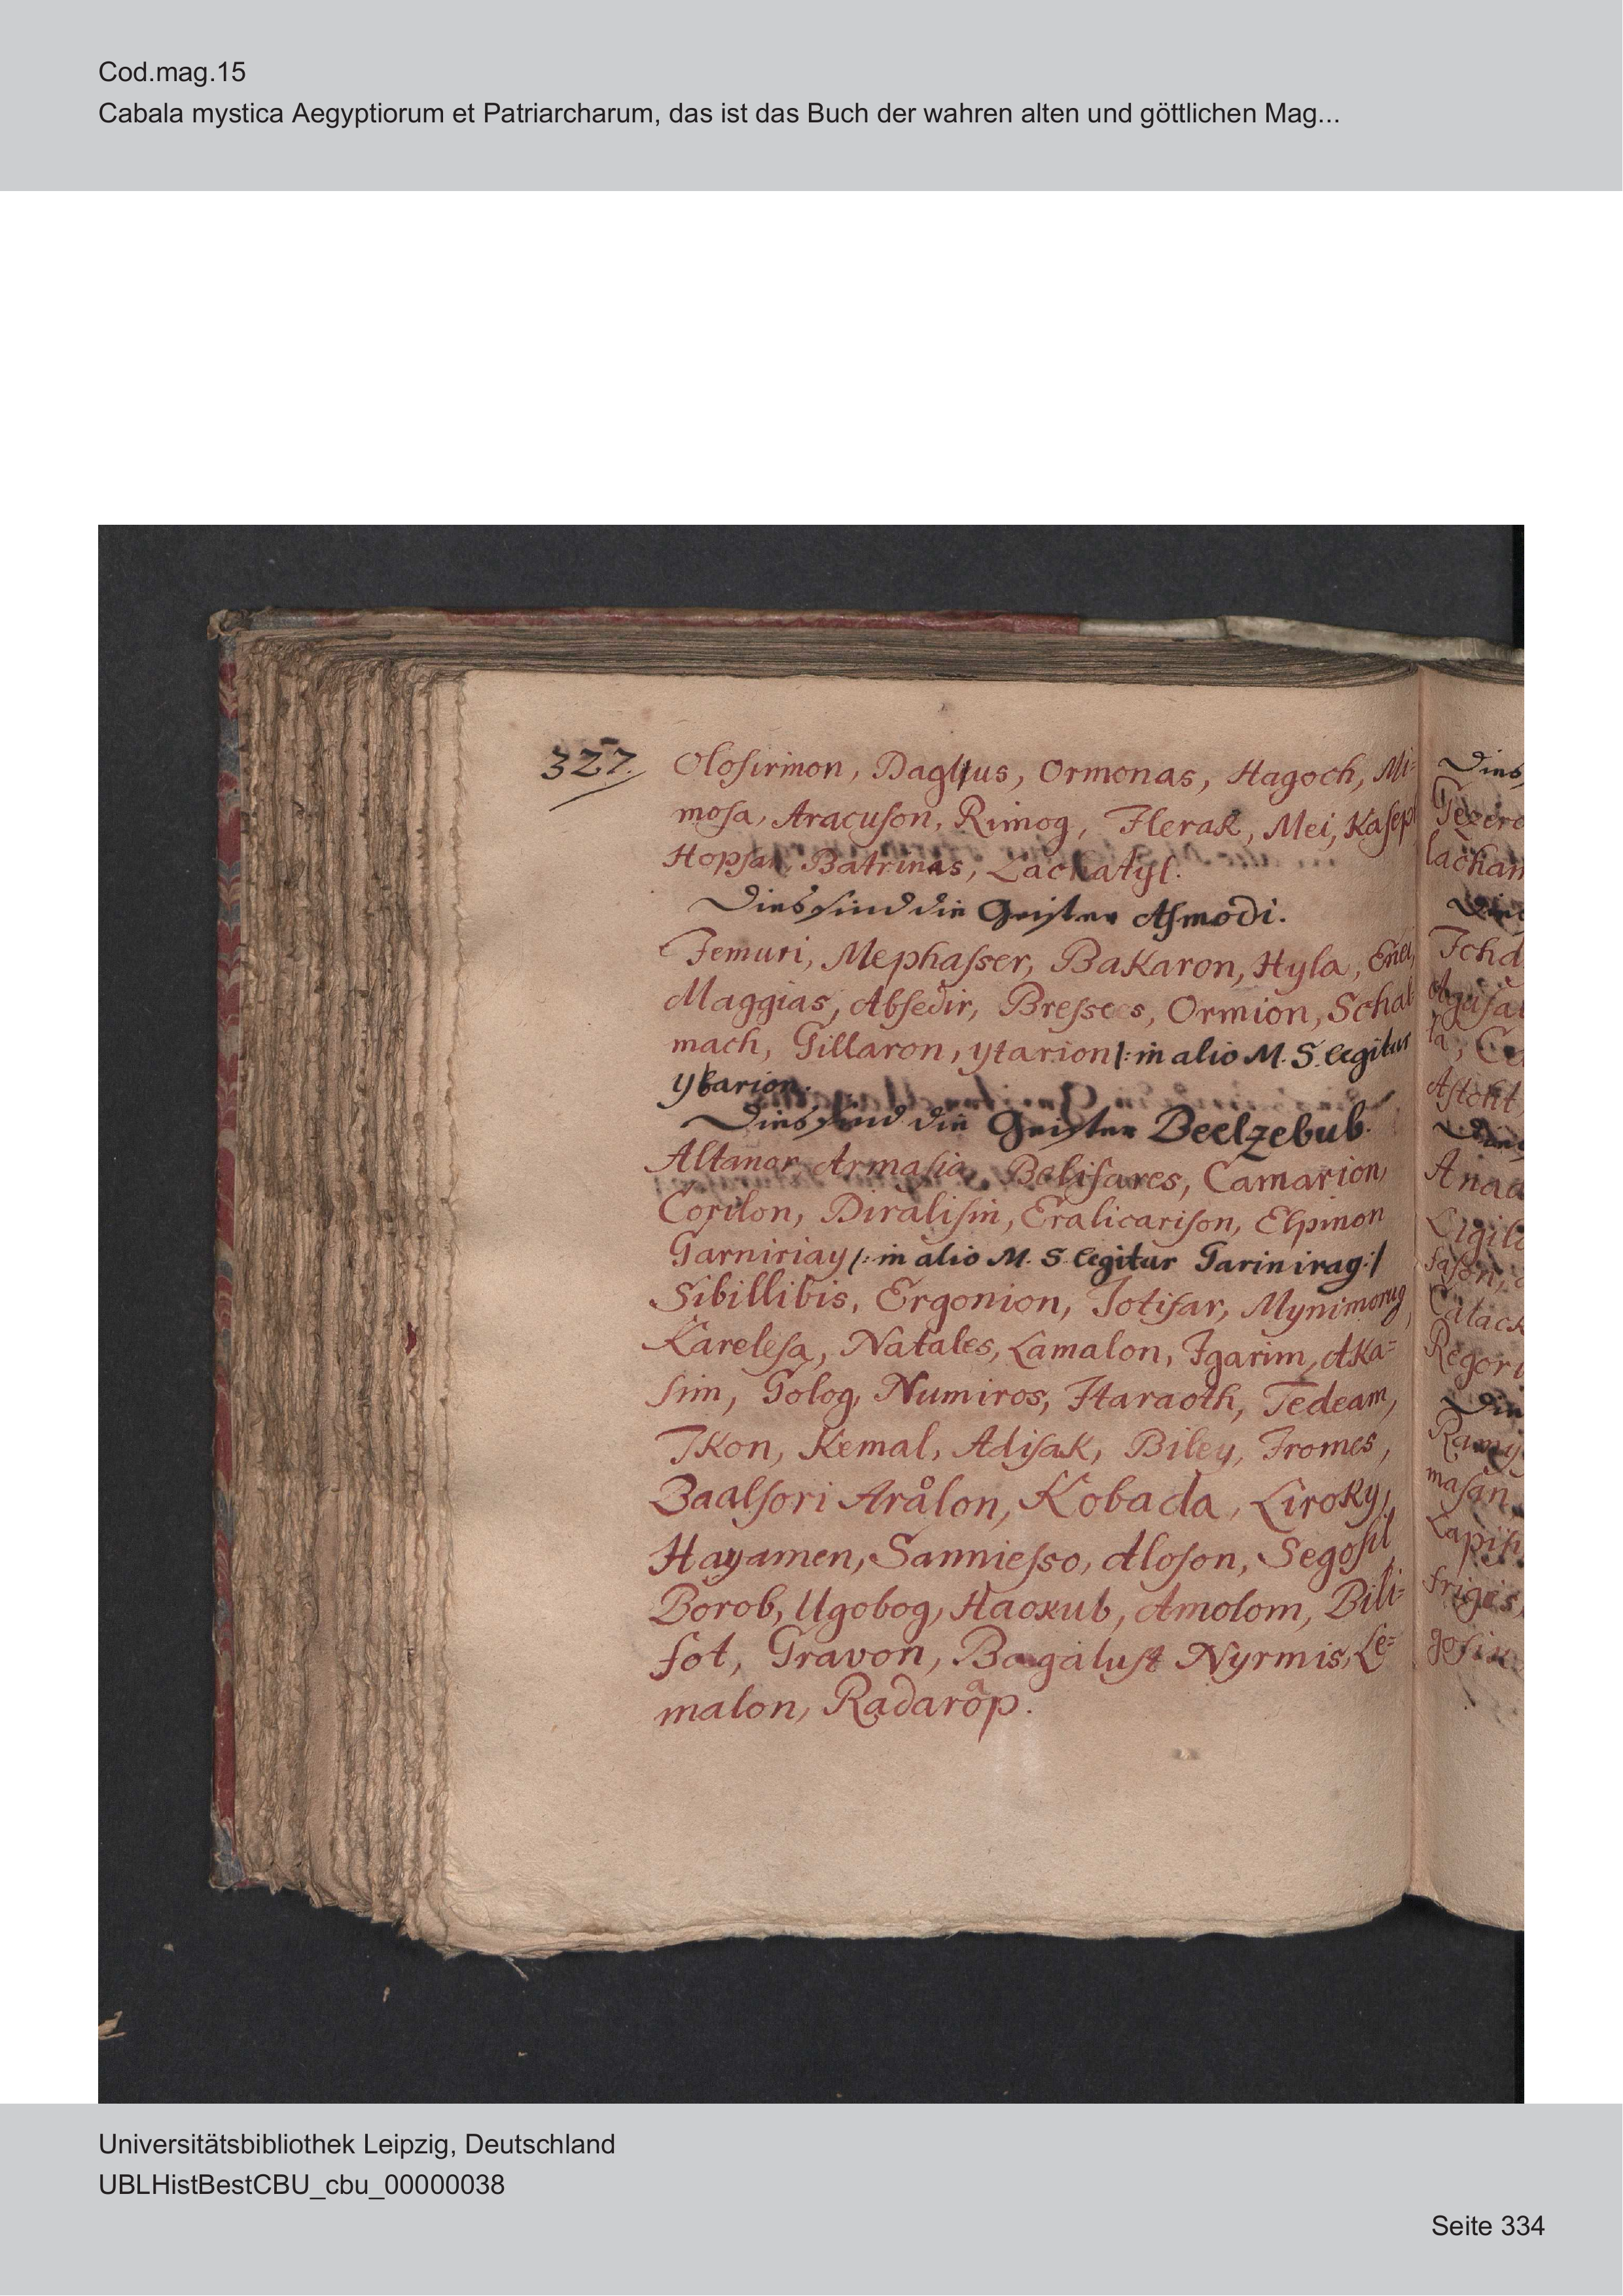 Cod.mag.15
Cabala mystica Aegyptiorum et Patriarcharum, das ist das Buch der wahren alten und göttlichen Mag...
327.
Olosirmon, Ormonas, Hagoch, Mi=
mosa, Aracuson, Rimog, Herak, Mei, Kaseph
Hopsan, Batrinas, Lachatyl.
Dies sind die Geister Asmodi.
Femuri, Mephasser, BaKaron, Hyla, Enei,
Maggias, Absedir, Bresses, Ormion, Schal
mach, Gillaron, ytarion /: in alio M. S. legitur
ybarion.
Dies sind die Geister Beelzebub.
Altanor, Armasia, Belisares, Camarion,
Corilon, Diralisin, Eralicarison, Elpinon
Garniriay /: in alio M. S. legitur Garinirag :/
Sibillibis, Ergonion, Jotisar, Mynimorug,
Karelesa, Natales, Lamalon, Igarim, AKa=
sim, Golog, Numiros, Haraoth, Tedeam,
IKon, Kemal, AdisaK, Biley, Fromes,
Baalsori Arålon, Kobada, LiroKy,
Hayamen, Sanniesso, Aloson, Segosil
Borob, Ugobog, Haoxub, Amolom, Bili=
fot, Gravon, Bagalust Nyrmis, Le=
malon, Radarap.
Dies
lachan
Universitätsbibliothek Leipzig, Deutschland
UBLHistBestCBU_cbu_00000038
Seite 334